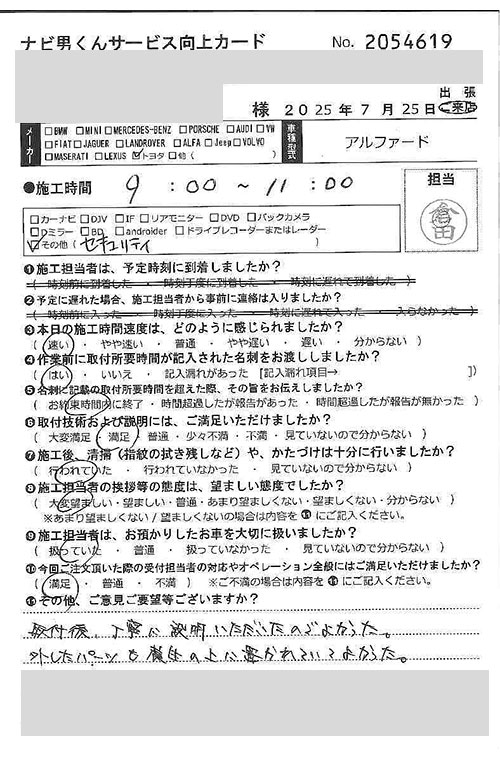 ナビ男くんサービス向上カード No. 2054619
様 2025年7月25日 出張 ご来店
メーカー □BMW □MINI □MERCEDES-BENZ □PORSCHE □AUDI □VW
□FIAT □JAGUER □LANDROVER □ALFA □Jeep □VOLVO
□MASERATI □LEXUS ☑トヨタ □他 ( )
車種型式 アルファード
●施工時間 9:00~11:00
担当
倉田
□カーナビ □DJV □IF □リアモニター □DVD □バックカメラ
□Dミラー □BD □androider □ドライブレコーダーまたはレーダー
☑その他 (セキュリティ )
❶施工担当者は、予定時刻に到着しましたか?
( 時刻前に到着した ・ 時刻丁度に到着した ・ 時刻に遅れて到着した )
❷予定に遅れた場合、施工担当者から事前に連絡は入りましたか?
( 時刻前に入った ・ 時刻丁度に入った ・ 時刻に遅れて入った ・ 入らなかった )
❸本日の施工時間速度は、どのように感じられましたか?
( 速い ・ やや速い ・ 普通 ・ やや遅い ・ 遅い ・ 分からない )
❹作業前に取付所要時間が記入された名刺をお渡ししましたか?
( はい ・ いいえ ・ 記入漏れがあった [記入漏れ項目→ ])
❺名刺に記載の取付所要時間を超えた際、その旨をお伝えしましたか?
( お約束時間内に終了 ・ 時間超過したが報告があった ・ 時間超過したが報告が無かった )
❻取付技術および説明には、ご満足いただけましたか?
( 大変満足 ・ 満足 ・ 普通 ・ 少々不満 ・ 不満 ・ 見ていないので分からない )
❼施工後、清掃(指紋の拭き残しなど)や、かたづけは十分に行いましたか?
( 行われていた ・ 行われていなかった ・ 見ていないので分からない )
❽施工担当者の挨拶等の態度は、望ましい態度でしたか?
( 大変望ましい・望ましい・普通・あまり望ましくない・望ましくない・分からない )
※あまり望ましくない/望ましくないの場合は内容を⓫にご記入ください。
❾施工担当者は、お預かりしたお車を大切に扱いましたか?
( 扱っていた ・ 普通 ・ 扱っていなかった ・ 見ていないので分からない )
❿今回ご注文頂いた際の受付担当者の対応やオペレーション全般にはご満足いただけましたか?
( 満足 ・ 普通 ・ 不満 ) ※ご不満の場合は内容を⓫にご記入ください。
⓫その他、ご意見ご要望等ございますか?
取付後、丁寧に説明いただいたのでよかった。
外したパーツも養生の上に置かれていてよかった。